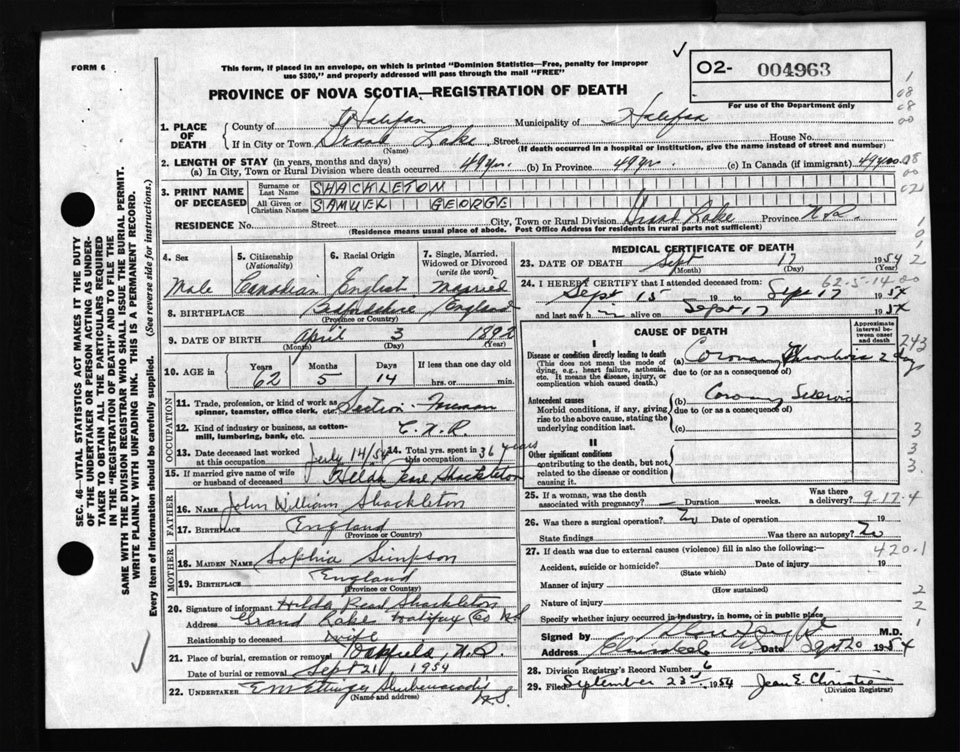 FORM 6
This form, if placed in an envelope, on which is printed "Dominion Statistics—Free, penalty for improper
use $300," and properly addressed will pass through the mail "FREE"
✓
O2- 004963
For use of the Department only
PROVINCE OF NOVA SCOTIA—REGISTRATION OF DEATH
1. PLACE OF DEATH
County of Halifax Municipality of Halifax
If in City or Town Grand Lake Street House No.
(Name) (If death occurred in a hospital or institution, give the name instead of street and number)
2. LENGTH OF STAY (in years, months and days)
(a) In City, Town or Rural Division where death occurred 49 yr. (b) In Province 49 yr. (c) In Canada (if immigrant) 49 yrs
3. PRINT NAME OF DECEASED
Surname or Last Name SHACKLETON
All Given or Christian Names SAMUEL GEORGE
RESIDENCE No. Street City, Town or Rural Division Grand Lake Province N.S.
(Residence means usual place of abode. Post Office Address for residents in rural parts not sufficient)
4. Sex Male
5. Citizenship (Nationality) Canadian
6. Racial Origin English
7. Single, Married, Widowed or Divorced (write the word) Married
8. BIRTHPLACE England
(Province or Country)
9. DATE OF BIRTH April 3 1892
(Month) (Day) (Year)
10. AGE in Years 62 Months 5 Days 14 If less than one day old
hrs. or min.
OCCUPATION
11. Trade, profession, or kind of work as spinner, teamster, office clerk, etc. Section-Foreman
12. Kind of industry or business, as cotton-mill, lumbering, bank, etc. C.N.R.
13. Date deceased last worked at this occupation July 14/54
14. Total yrs. spent in this occupation 36 years
15. If married give name of wife or husband of deceased Shackleton
FATHER
16. Name John William Shackleton
17. Birthplace England
(Province or Country)
MOTHER
18. MAIDEN NAME Sophia Simpson
19. BIRTHPLACE England
(Province or Country)
20. Signature of informant Hilda Shackleton
Address Grand Lake Halifax Co N.S
Relationship to deceased wife
21. Place of burial, cremation or removal Oakfield, N.S.
Date of burial or removal Sept 21 1954
22. UNDERTAKER E M Ettinger Shubenacadie N.S.
(Name and address)
MEDICAL CERTIFICATE OF DEATH
23. DATE OF DEATH Sept 17 1954
(Month) (Day) (Year)
62-5-14
24. I HEREBY CERTIFY that I attended deceased from:
Sept 15 19 to Sept 17 1954
and last saw h im alive on Sept 17 1954
CAUSE OF DEATH
Approximate interval between cause and death
I
Disease or condition directly leading to death
(This does not mean the mode of dying, e.g., heart failure, asthenia, etc. It means the disease, injury, or complication which caused death.)
(a) Coronary Thrombosis 2 days
due to (or as a consequence of)
Antecedent causes
Morbid conditions, if any, giving rise to the above cause, stating the underlying condition last.
(b) Coronary Sclerosis
due to (or as a consequence of)
(c)
II
Other significant conditions
contributing to the death, but not related to the disease or condition causing it.
25. If a woman, was the death associated with pregnancy? — Duration weeks. Was there a delivery?
9-17-4
26. Was there a surgical operation? No Date of operation 19
State findings Was there an autopsy? No
27. If death was due to external causes (violence) fill in also the following:—
420.1
Accident, suicide or homicide? Date of injury 19
(State which)
Manner of injury
(How sustained)
Nature of injury
Specify whether injury occurred in industry, in home, or in public place.
Signed by M.D.
Address NS Date Sept 20 1954
28. Division Registrar's Record Number 6
29. Filed September 23rd 1954 Jean E. Christie
(Division Registrar)
SEC. 46—VITAL STATISTICS ACT MAKES IT THE DUTY
OF THE UNDERTAKER OR PERSON ACTING AS UNDER-
TAKER TO OBTAIN ALL THE PARTICULARS REQUIRED
IN THE "REGISTRATION OF DEATH" AND TO FILE THE
SAME WITH THE DIVISION REGISTRAR WHO SHALL ISSUE THE BURIAL PERMIT.
WRITE PLAINLY WITH UNFADING INK. THIS IS A PERMANENT RECORD.
Every item of information should be carefully supplied. (See reverse side for instructions.)
243